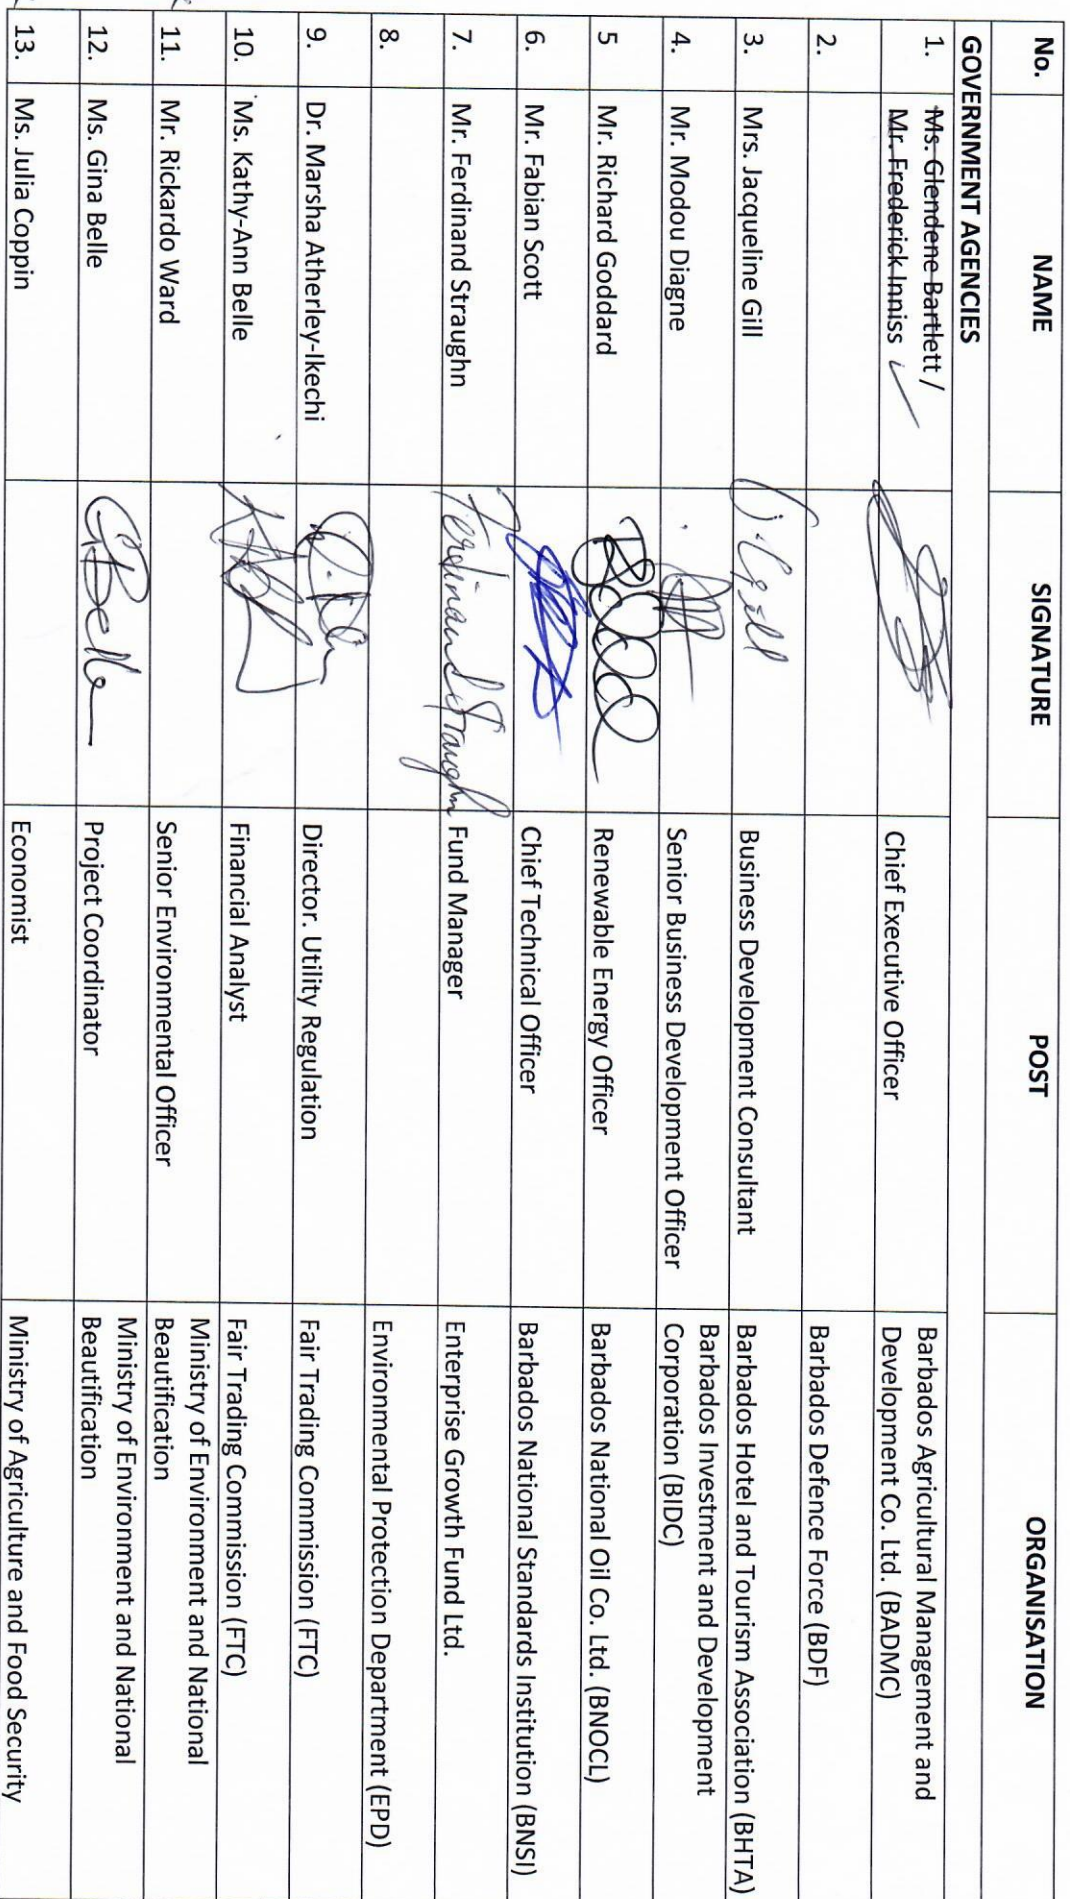 No. NAME SIGNATURE POST ORGANISATION
GOVERNMENT AGENCIES
1. Ms. Glendene Bartlett / Barbados Agricultural Management and
Mr. Frederick Inniss ✓ Chief Executive Officer Development Co. Ltd. (BADMC)
2. Barbados Defence Force (BDF)
3. Mrs. Jacqueline Gill J. Gill Business Development Consultant Barbados Hotel and Tourism Association (BHTA)
4. Mr. Modou Diagne Senior Business Development Officer Barbados Investment and Development
Corporation (BIDC)
5 Mr. Richard Goddard Renewable Energy Officer Barbados National Oil Co. Ltd. (BNOCL)
6. Mr. Fabian Scott Chief Technical Officer Barbados National Standards Institution (BNSI)
7. Mr. Ferdinand Straughn Ferdinand Straughn Fund Manager Enterprise Growth Fund Ltd.
8. Environmental Protection Department (EPD)
9. Dr. Marsha Atherley-Ikechi Director. Utility Regulation Fair Trading Commission (FTC)
10. Ms. Kathy-Ann Belle Financial Analyst Fair Trading Commission (FTC)
11. Mr. Rickardo Ward Senior Environmental Officer Ministry of Environment and National
Beautification
12. Ms. Gina Belle GBelle Project Coordinator Ministry of Environment and National
Beautification
13. Ms. Julia Coppin Economist Ministry of Agriculture and Food Security